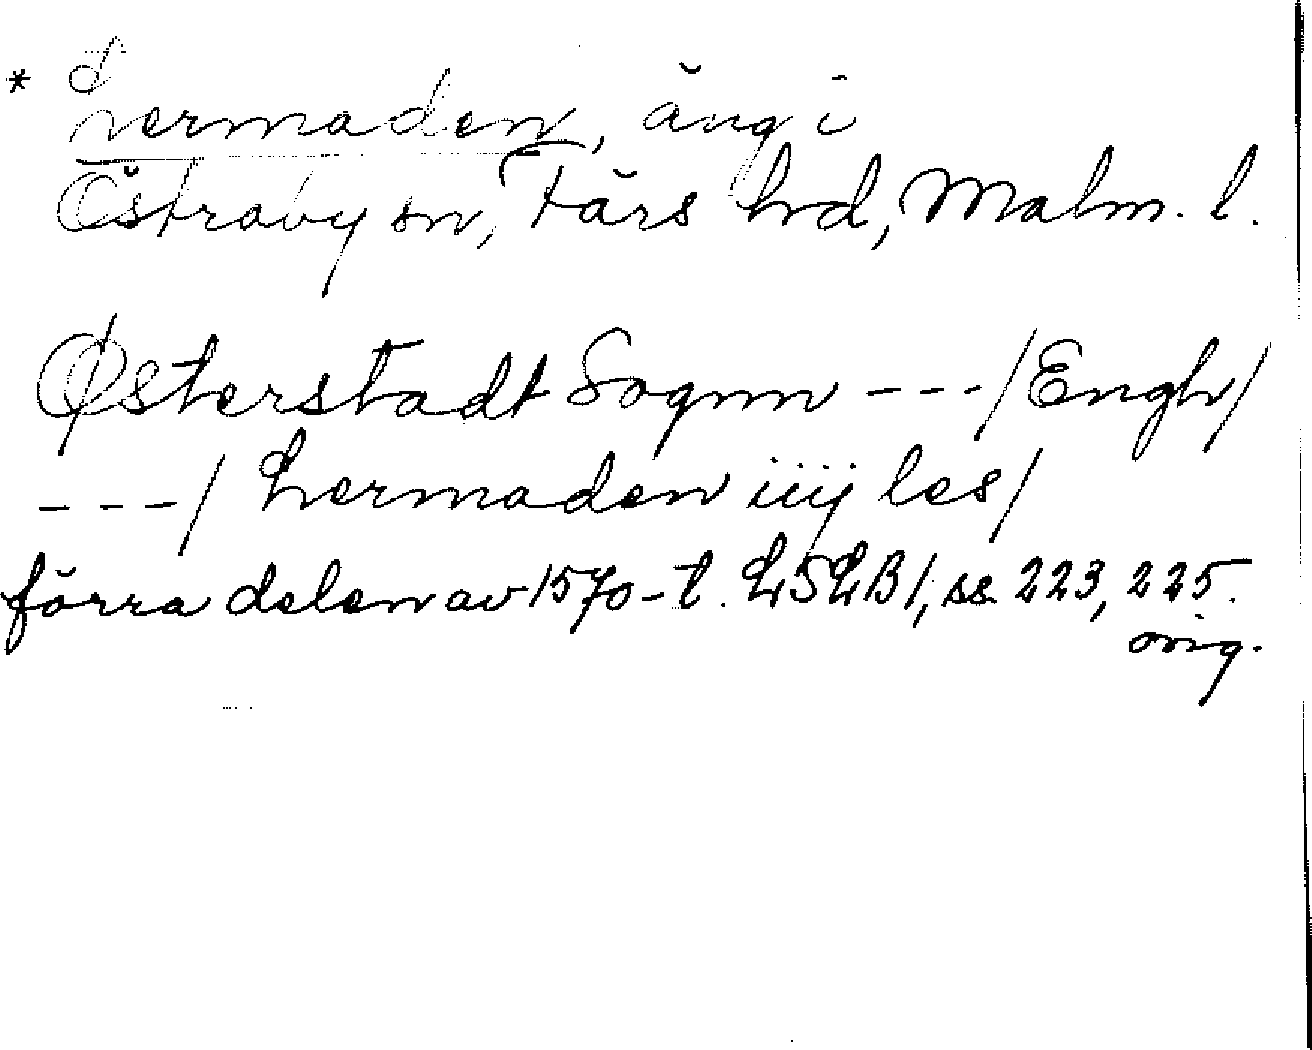 * Lermaden, äng i
Östraby sn, Färs hd, Malm. l.
Østerstadt Sognn ---/Engh/
---/ Lermaden iiij les/
förra delen av 1570-t. LSLB 1, ss. 223, 225.
orig.